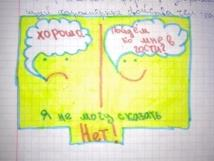 хорошо
Пойдём
ко мне в
гости?
Я не могу сказать
Нет!